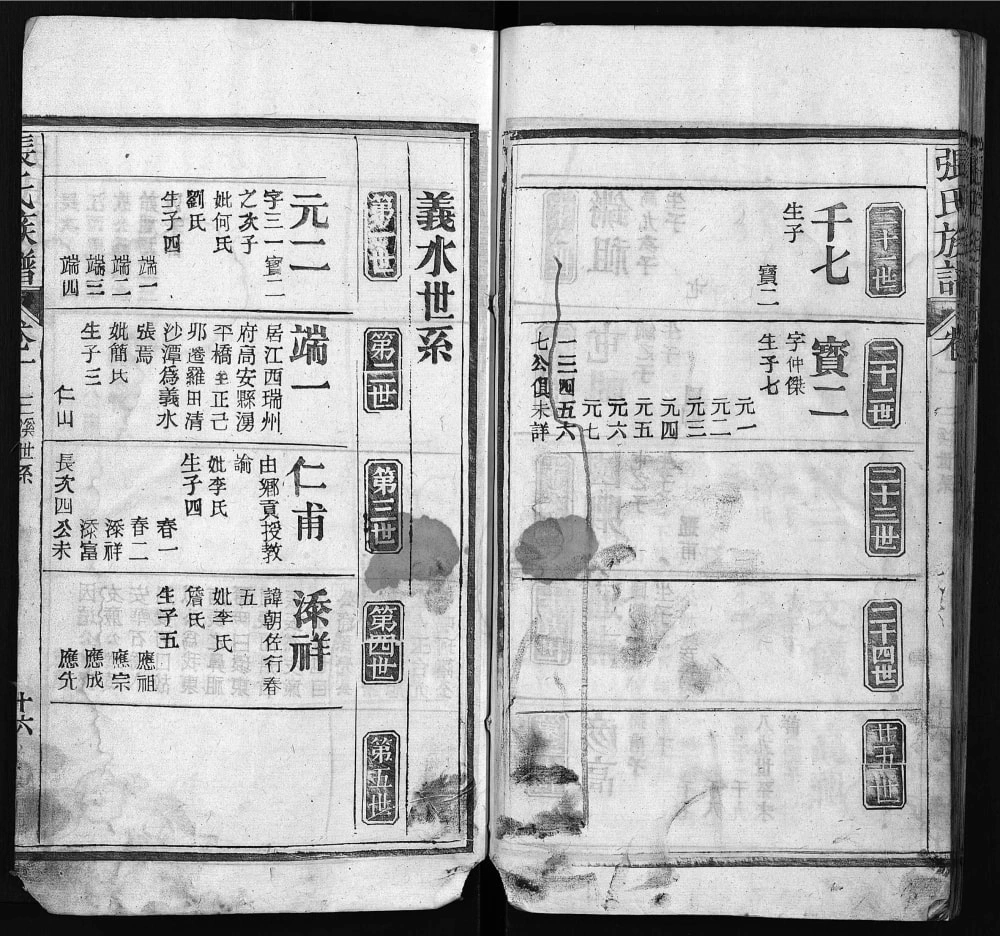 張氏族譜
二十一世
千七
生子
寶二
二十二世
寶二
字仲傑
生子七
元一
元二
元三
元四
元五
元六
元七
一三四五六
七公俱未詳
二十三世
二十四世
廿五世
義水世系
第一世
元二
字三一寶二
之次子
妣何氏
劉氏
生子四
端一
端二
端三
端四
第二世
端一
居江西瑞州
府高安縣湧
平橋至正己
邜遷羅田清
沙潭為義水
張焉
妣簡氏
生子三
仁山
第三世
仁甫
由鄉貢授教
諭
妣李氏
生子四
春一
春二
添祥
添富
長次四公未
第四世
添祥
諱朝佐行春
五
妣李氏
詹氏
生子五
應祖
應宗
應成
應先
第五世
張氏族譜
卷二
世系
廿六